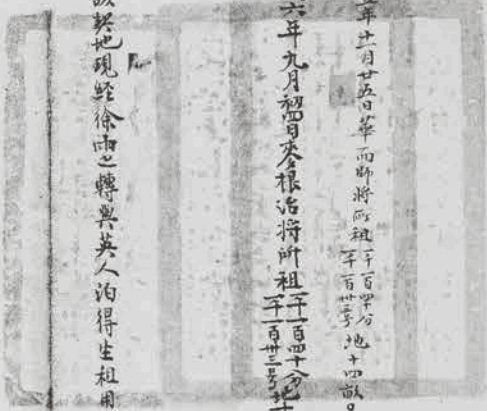 年十一月廿五日華而師將所租一千一百四十分一千一百卅三号地十四畝
六年九月初四日麥根治將所租一千一百四十分一千一百卅三号地十
契地現經徐雨之轉與英人泊得生租用